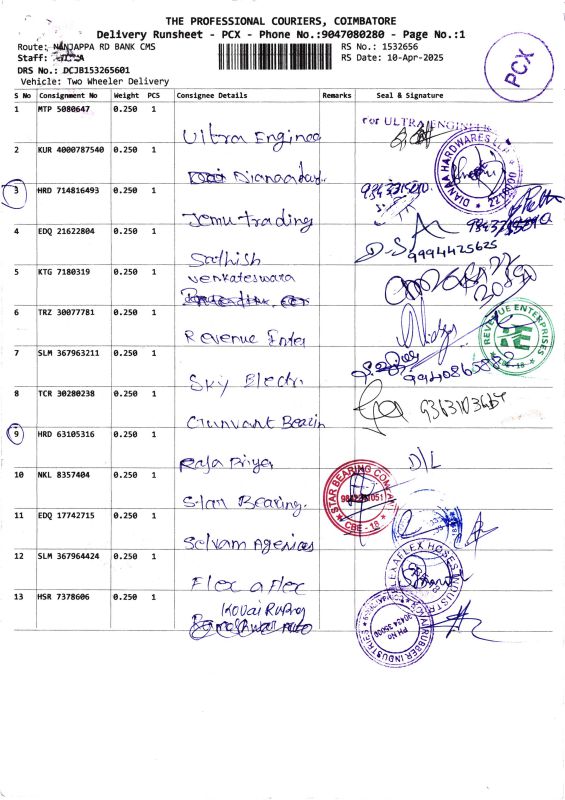 THE PROFESSIONAL COURIERS, COIMBATORE
Delivery Runsheet - PCX - Phone No.:9047080280 - Page No.:1
Route: NANJAPPA RD BANK CMS
RS No.: 1532656
Staff:
RS Date: 10-Apr-2025
DRS No.: DCJB153265601
Vehicle: Two Wheeler Delivery
PCX
S No Consignment No Weight PCS Consignee Details Remarks Seal & Signature
1 MTP 5080647 0.250 1 Ultra Enginee For ULTRA ENGINEER
2 KUR 4000787540 0.250 1 DIANAA HARDWARES
3 HRD 714816493 0.250 1 Jemu trading
4 EDQ 21622804 0.250 1 Sathish D.S 9994425625
5 KTG 7180319 0.250 1 Venkateswara
6 TRZ 30077781 0.250 1 Revenue Enter REVENUE ENTERPRISES
7 SLM 367963211 0.250 1 Sky Electr.
8 TCR 30280238 0.250 1 Gunvant Bearin
9 HRD 63105316 0.250 1 Raja Priya D/L
10 NKL 8357404 0.250 1 Star Bearing. STAR BEARING COMPANY CBE - 18
11 EDQ 17742715 0.250 1 Selvam Agencies
12 SLM 367964424 0.250 1 Flex a Flex
13 HSR 7378606 0.250 1 Kovai Rubber RUBBER INDUSTRIES PH No